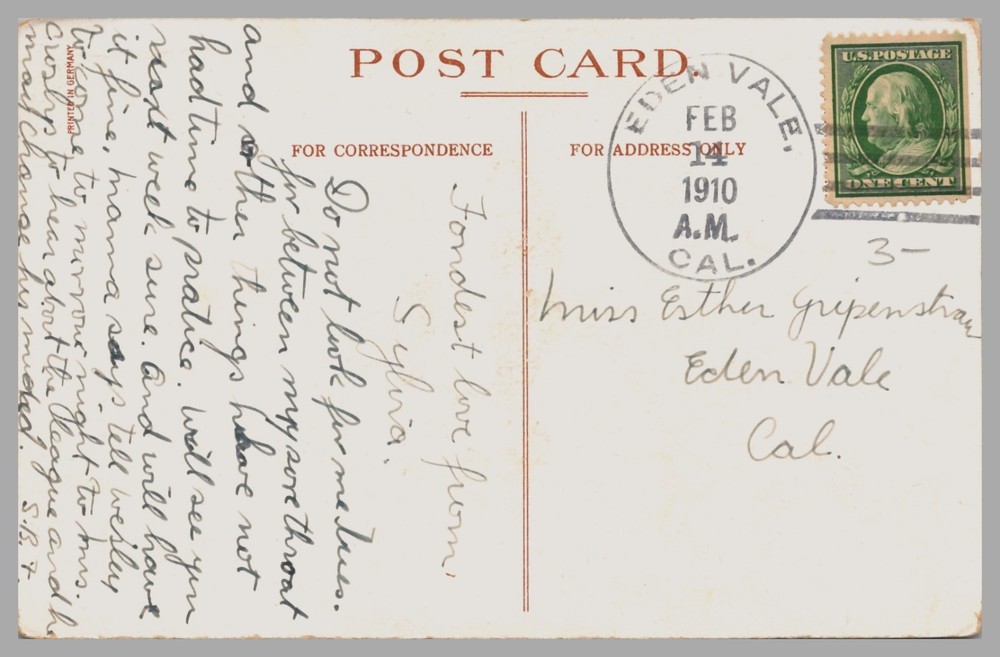 POST CARD.
FOR CORRESPONDENCE
FOR ADDRESS ONLY
PRINTED IN GERMANY
U.S. POSTAGE
ONE CENT
EDEN VALE,
FEB
14
1910
A.M.
CAL.
3-
Miss Esther Gripenstraw
Eden Vale
Cal.
Fondest love from,
Sylvia.
Do not look for me Tues.
for between my sore throat
and other things have not
had time to pratice. will see you
next week sure. and will have
it fine, mama says tell Wesley
to come to morrow night to Mrs.
Crosbys to hear about the League and he
may change his mind. S.B.F.